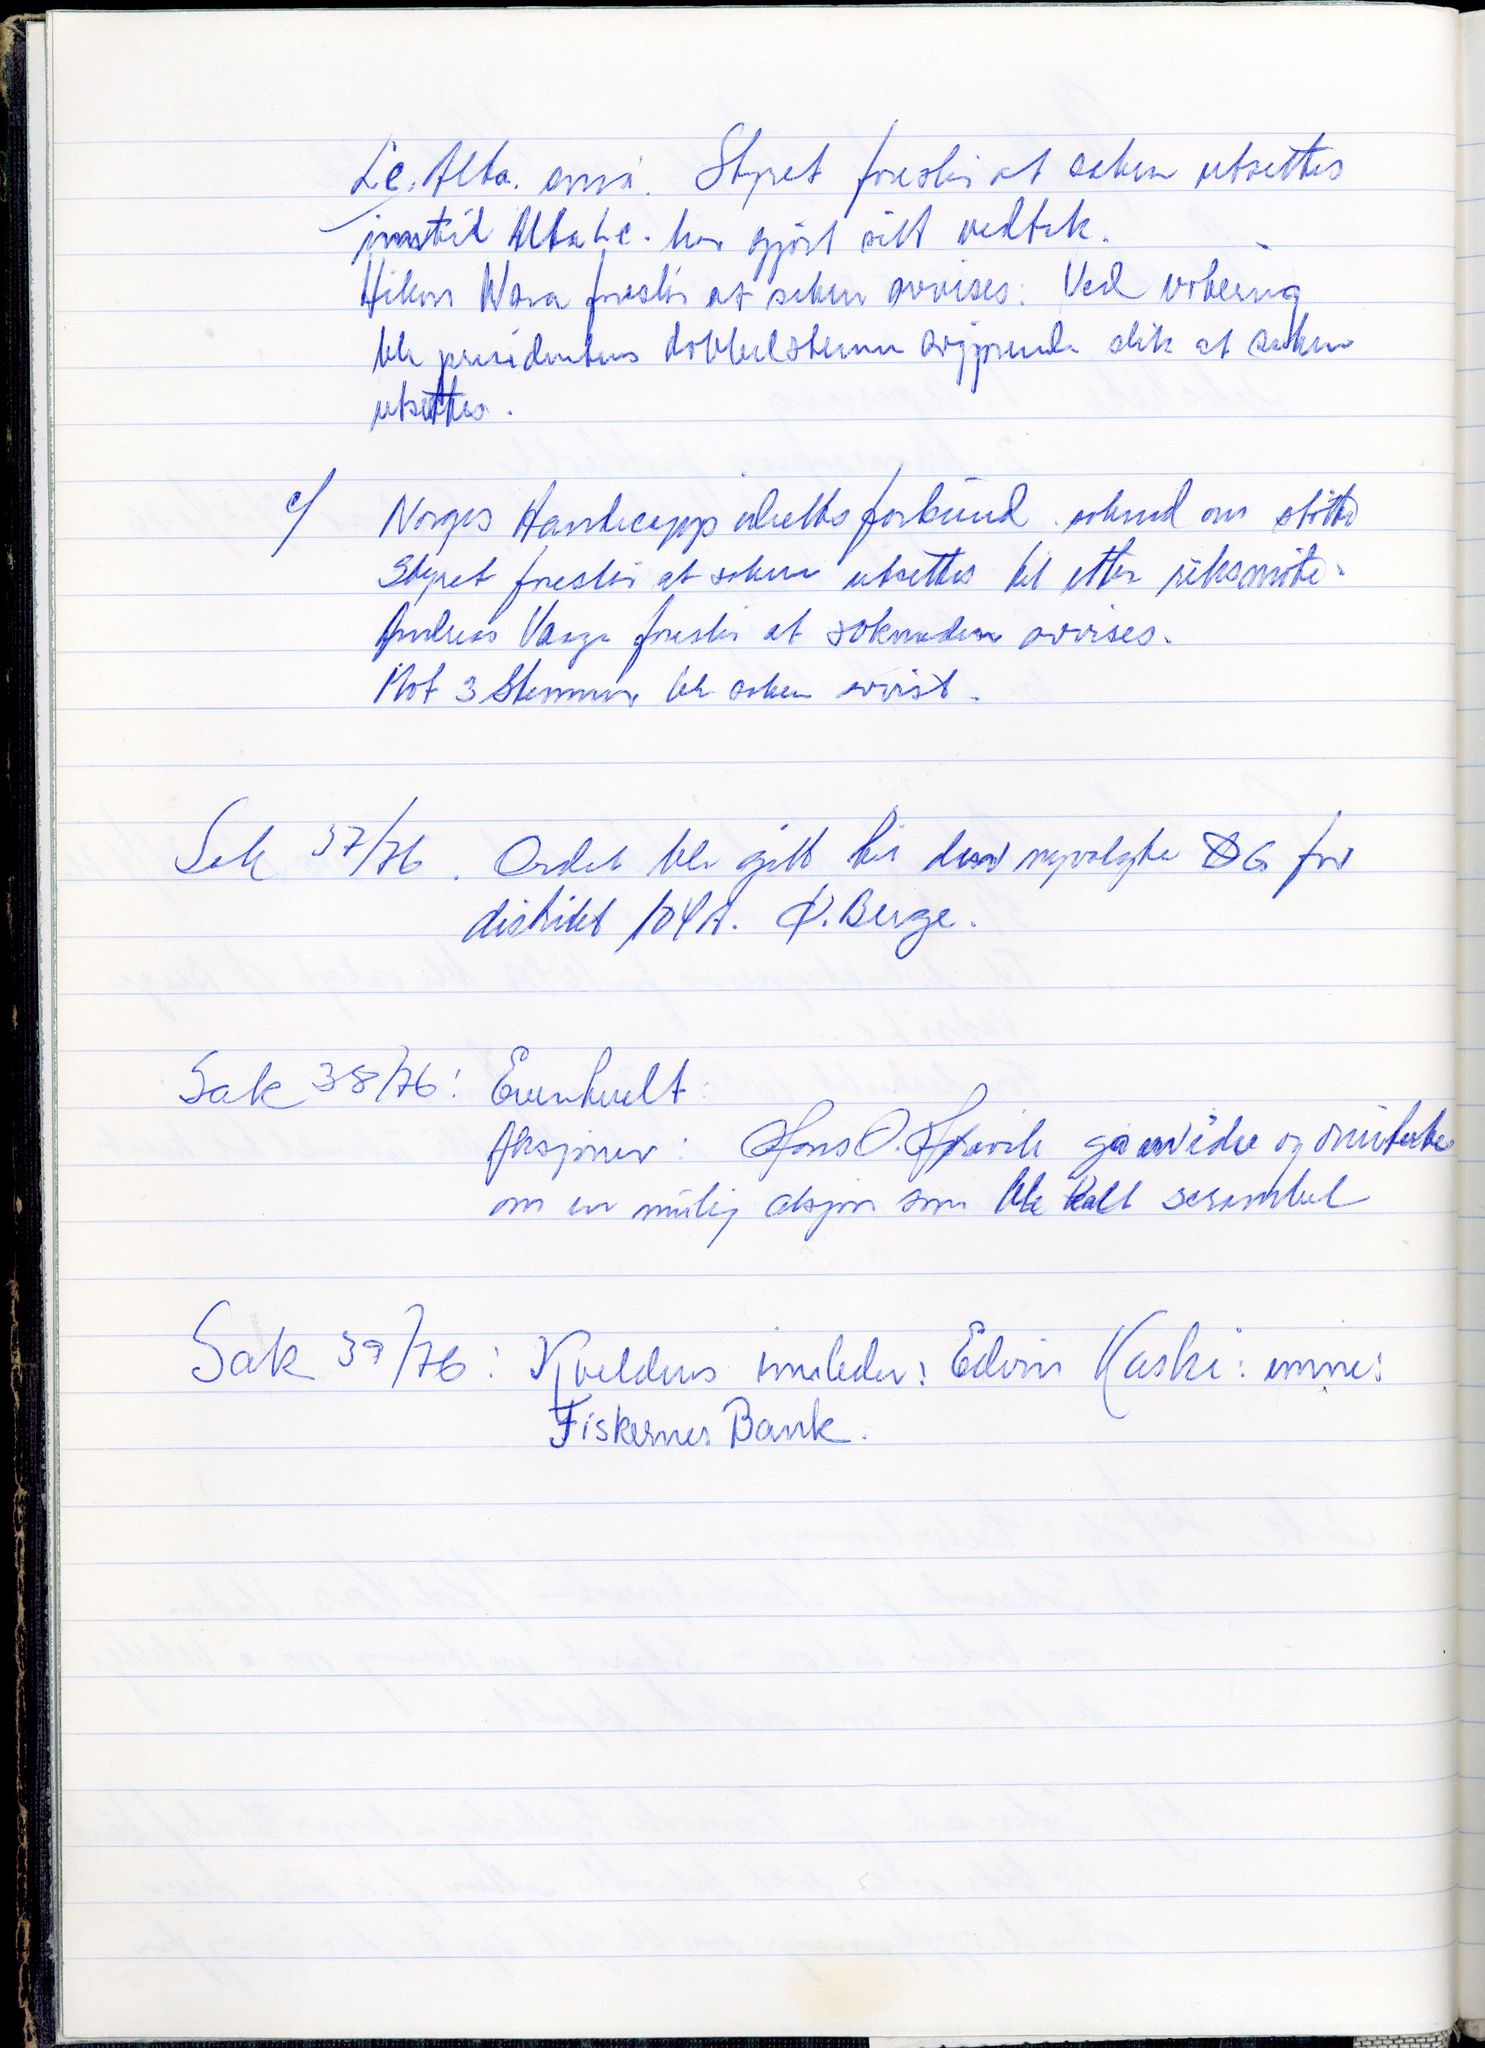 Lc. Alta. Styret foreslår at saken utsettes
inntil Alta Lc. har gjort sitt vedtak.
Håkon Wara foreslår at saken avvises. Ved votering
ble presidentens dobbelstemme avgjørende slik at saken
utsettes.
c/ Norges Handicapp idrettsforbund. søknad om støtte
Styret foreslår at saken utsettes til etter riksmøte.
Andreas Vaage foreslår at søknaden avvises.
Mot 3 Stemmer ble saken avvist.
Sak 37/76. Ordet ble gitt til den nyvalgte DG for
distriktet 104A. Ø. Berge.
Sak 38/76: Eventuelt:
Aksjoner: Hans O. ga en idee og
om en mulig aksjon som ble kalt scrambel
Sak 39/76: Kveldens innleder: Edvin Kaski: emne:
Fiskernes Bank.